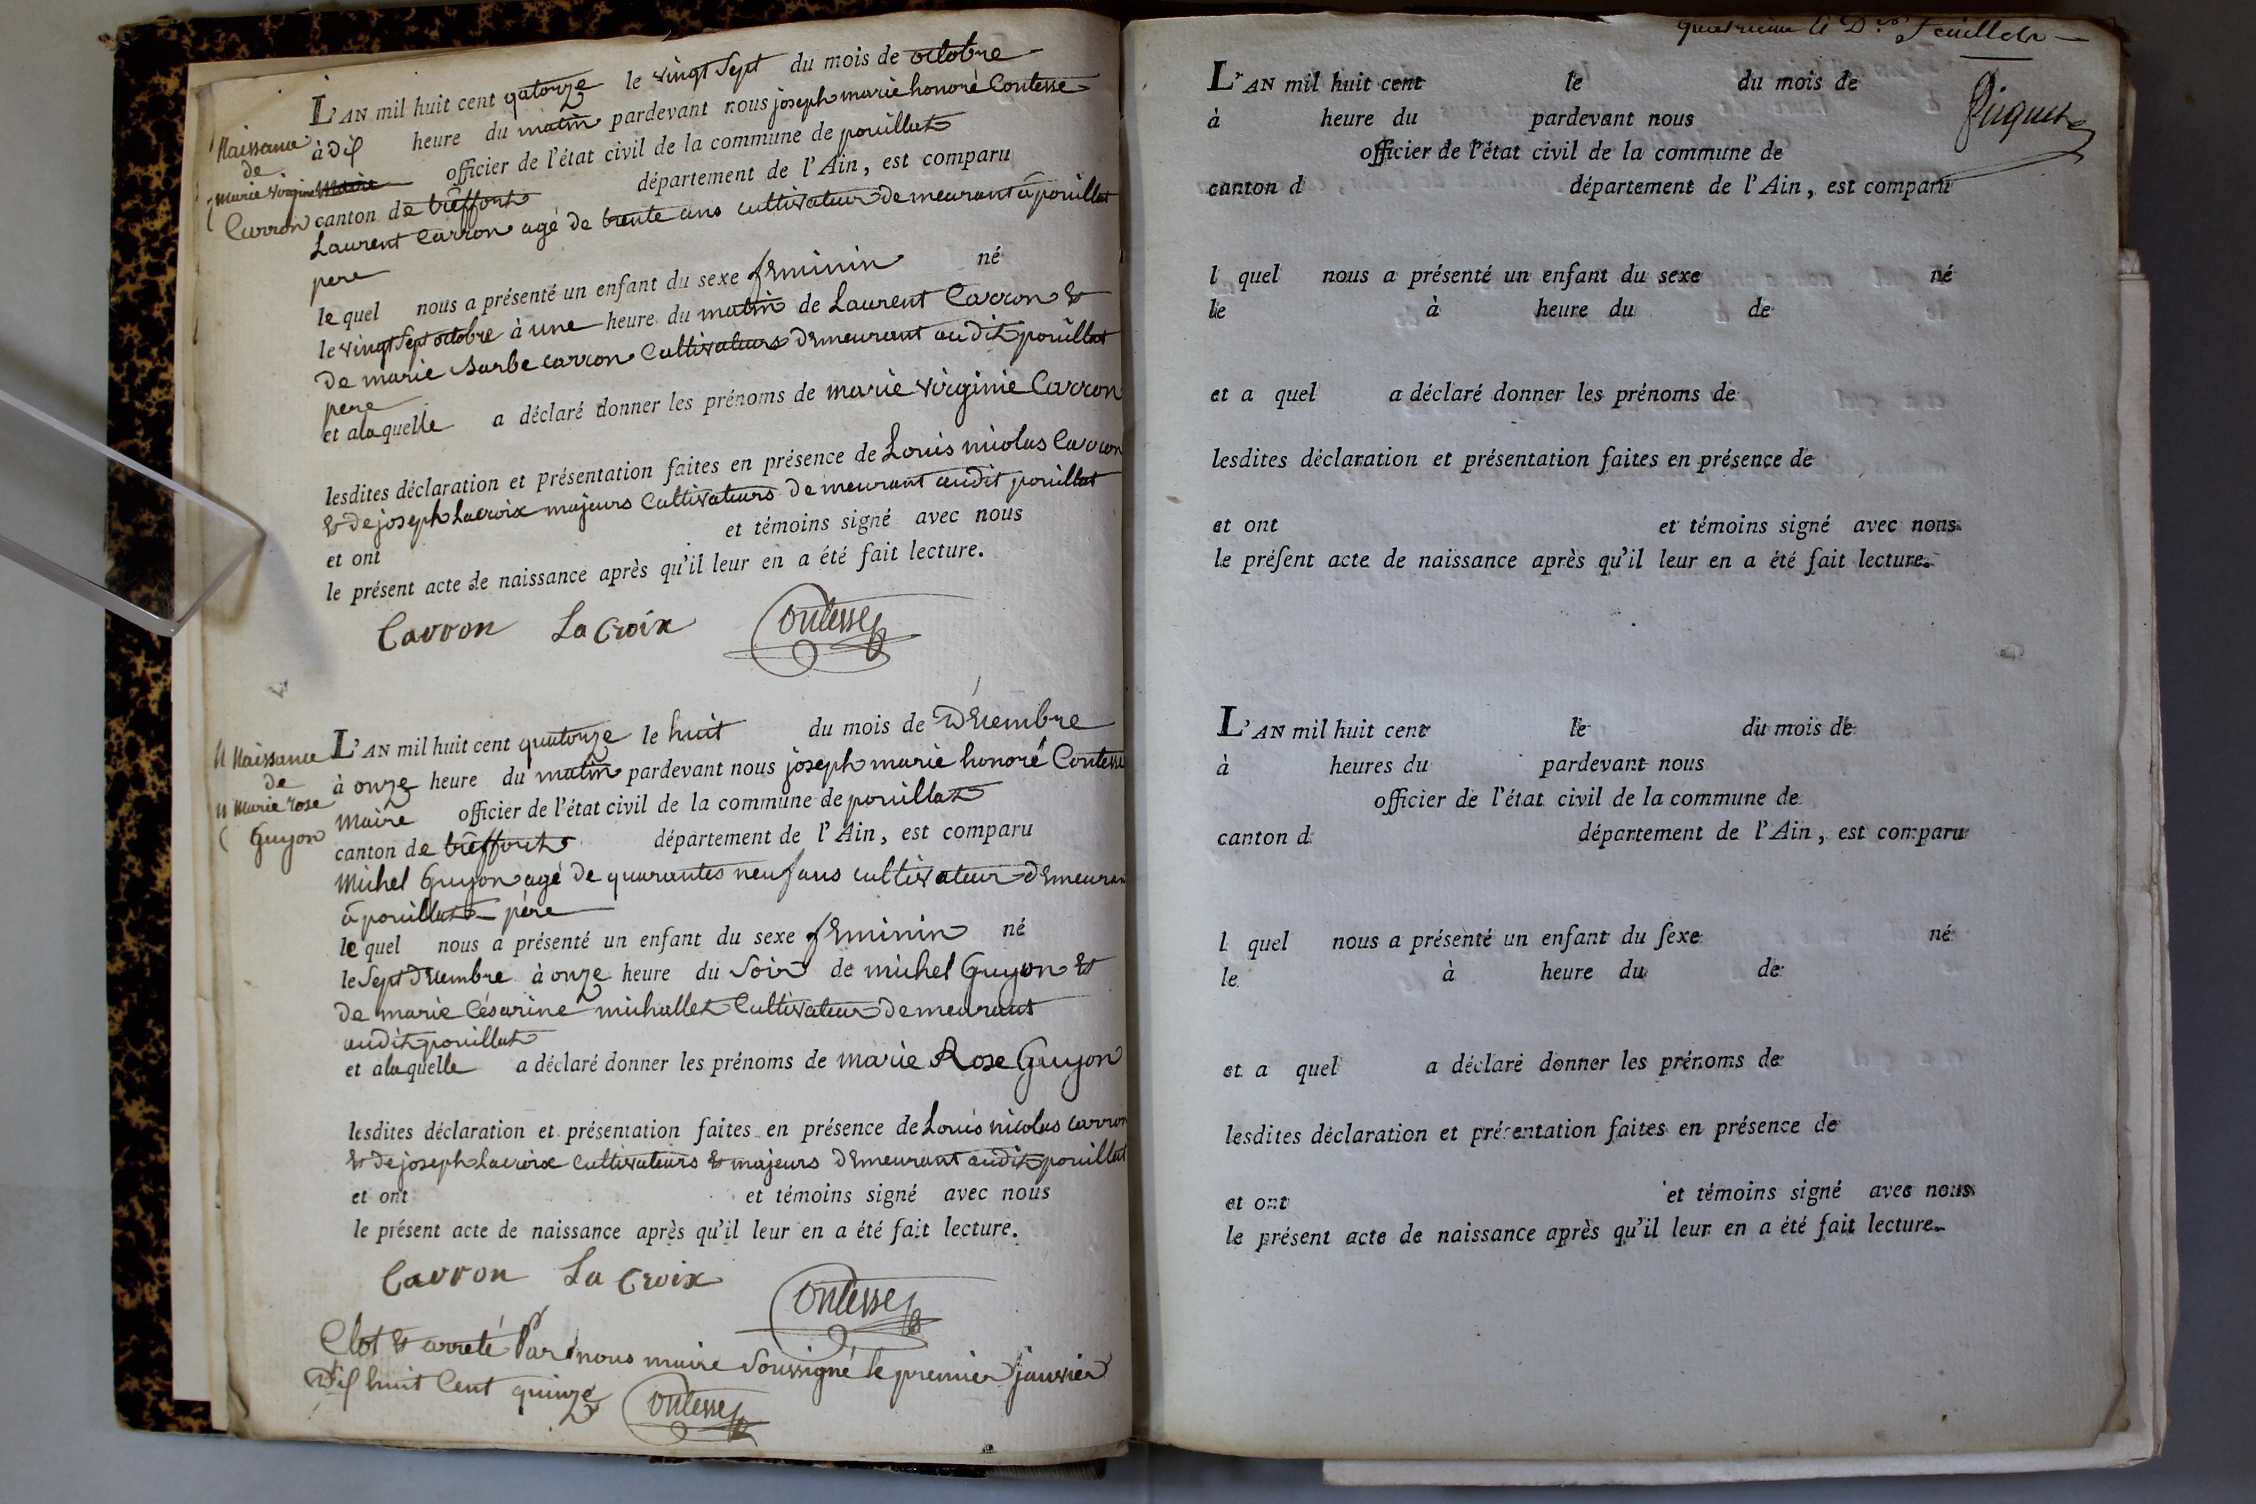 L'AN mil huit cent qatorze le vingt Sept du mois de octobre
Naissance
de
Marie Virginie
Carron
à dix heure du matin pardevant nous joseph marie honoré Contesse
maire officier de l'état civil de la commune de pouillat
canton de treffort département de l'Ain, est comparu
Laurent Carron agé de trente ans cultivateur demeurant à pouillat
pere
le quel nous a présenté un enfant du sexe feminin né
le vingt Sept octobre à une heure du matin de Laurent Carron &
de marie Barbe carron Cultivateurs demeurant audit pouillat
pere
et a laquelle a déclaré donner les prénoms de marie virginie Carron
lesdites déclaration et présentation faites en présence de Louis nicolas Carron
& de joseph Lacroix majeurs Cultivateurs demeurant audit pouillat
et ont et témoins signé avec nous
le présent acte de naissance après qu'il leur en a été fait lecture.
Carron La Croix Contesse
Naissance
de
Marie rose
Guyon
L'AN mil huit cent quatorze le huit du mois de Décembre
à onze heure du matin pardevant nous joseph marie honoré Contesse
Maire officier de l'état civil de la commune de pouillat
canton de treffort département de l'Ain, est comparu
Michel Guyon agé de quarantes neuf ans cultivateur demeurant
à pouillat père
le quel nous a présenté un enfant du sexe feminin né
le Sept Décembre à onze heure du Soir de michel Guyon &
de marie Césarine michallet Cultivateur demeurant
audit pouillat
et a laquelle a déclaré donner les prénoms de marie Rose Guyon
lesdites déclaration et présentation faites en présence de Louis nicolas carron
& de joseph Lacroix Cultivateurs & majeurs demeurant audit pouillat
et ont et témoins signé avec nous
le présent acte de naissance après qu'il leur en a été fait lecture.
Carron La Croix Contesse
Clot & arreté Par nous maire Soussigné le premier janvier
huit Cent quinze Contesse
quatrieme & Dr. feuillet
Piquet
L'AN mil huit cent le du mois de
à heure du pardevant nous
officier de l'état civil de la commune de
canton d département de l'Ain, est comparu
l quel nous a présenté un enfant du sexe né
le à heure du de
et a quel a déclaré donner les prénoms de
lesdites déclaration et présentation faites en présence de
et ont et témoins signé avec nous
le préſent acte de naissance après qu'il leur en a été fait lecture.
L'AN mil huit cent le du mois de
à heures du pardevant nous
officier de l'état civil de la commune de
canton d département de l'Ain, est comparu
l quel nous a présenté un enfant du ſexe né
le à heure du de
et a quel a déclaré donner les prénoms de
lesdites déclaration et présentation faites en présence de
et ont et témoins signé avec nous
le présent acte de naissance après qu'il leur en a été fait lecture.